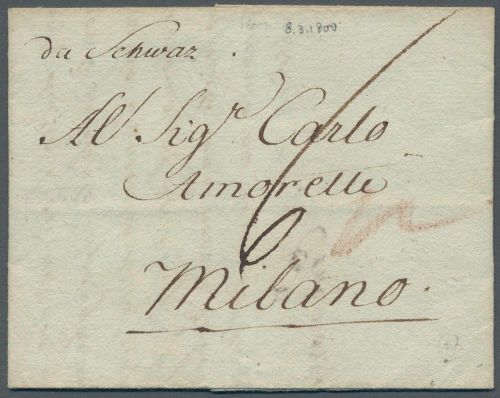 8.3.1800
da Schwaz.
Al Sigr. Carlo
Amoretti
6
Milano.